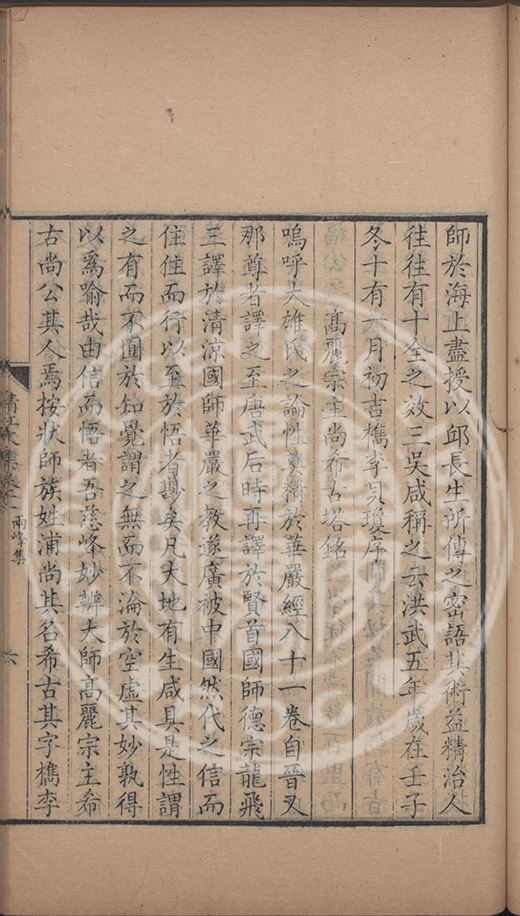 師於海上盡授以邱長生所傳之密語其術益精治人
往往有十全之效三吳咸稱之云洪武五年歲在壬子
冬十有六月初吉檇李貝瓊序
高麗宗主尚希古塔銘
嗚呼大雄氏之論性莫精於華嚴經八十一卷自晉叉
那尊者譯之至唐武后時再譯於賢首國師德宗龍飛
三譯於清涼國師華嚴之教遂廣被中國然代之信而
住住而行以至於悟者尠矣凡大地有生咸具是性謂
之有而不囿於知覺謂之無而不淪於空虛其妙孰得
以爲喻哉由信而悟者吾慈峰妙辨大師高麗宗主希
古尚公其人焉按狀師族姓浦尚其名希古其字檇李
清江文集卷十
兩峰集
六